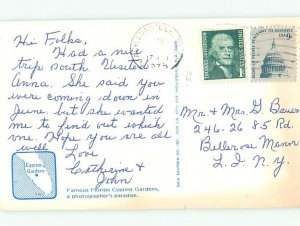 Hi Folks,
Had a nice
trip south. Visited
Anna. She said you
were coming down in
June but she wanted
me to find out which
one. Hope you are all
well. Love
Catherine &
John
Cypress
Gardens
Famous Florida Cypress Gardens,
a photographer's paradise.
Mr & Mrs G. Bauer
246-26 85 Rd.
Bellerose Manor
L.I. N.Y.